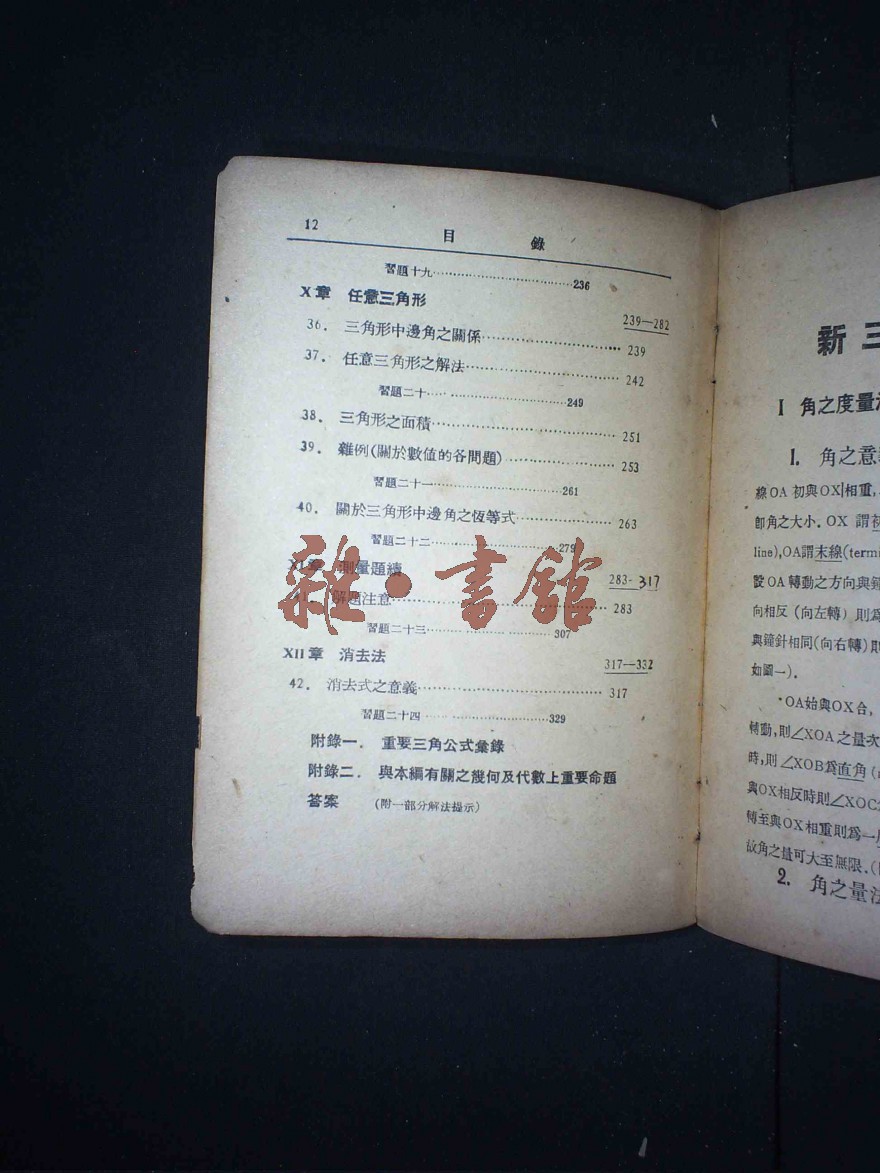 12 目錄
習題十九 236
X章 任意三角形 239—282
36. 三角形中邊角之關係 239
37. 任意三角形之解法 242
習題二十 249
38. 三角形之面積 251
39. 雜例(關於數值的各問題) 253
習題二十一 261
40. 關於三角形中邊角之恆等式 263
習題二十二 279
XI章 測量題續 283-317
41. 解題注意 283
習題二十三 307
XII章 消去法 317—332
42. 消去式之意義 317
習題二十四 329
附錄一. 重要三角公式彙錄
附錄二. 與本編有關之幾何及代數上重要命題
答案 (附一部分解法提示)
雜·書館
新三
I 角之度量
1. 角之意
線OA初與OX相重,
卽角之大小. OX 謂
line),OA謂末線(termi
設OA轉動之方向與
向相反 (向左轉) 則爲
與鐘針相同(向右轉)則
如圖一).
·OA始與OX合,
轉動,則∠XOA之量次
時,則∠XOB爲直角(
與OX相反時則∠XOC
轉至與OX相重則爲一
故角之量可大至無限.(
2. 角之量法